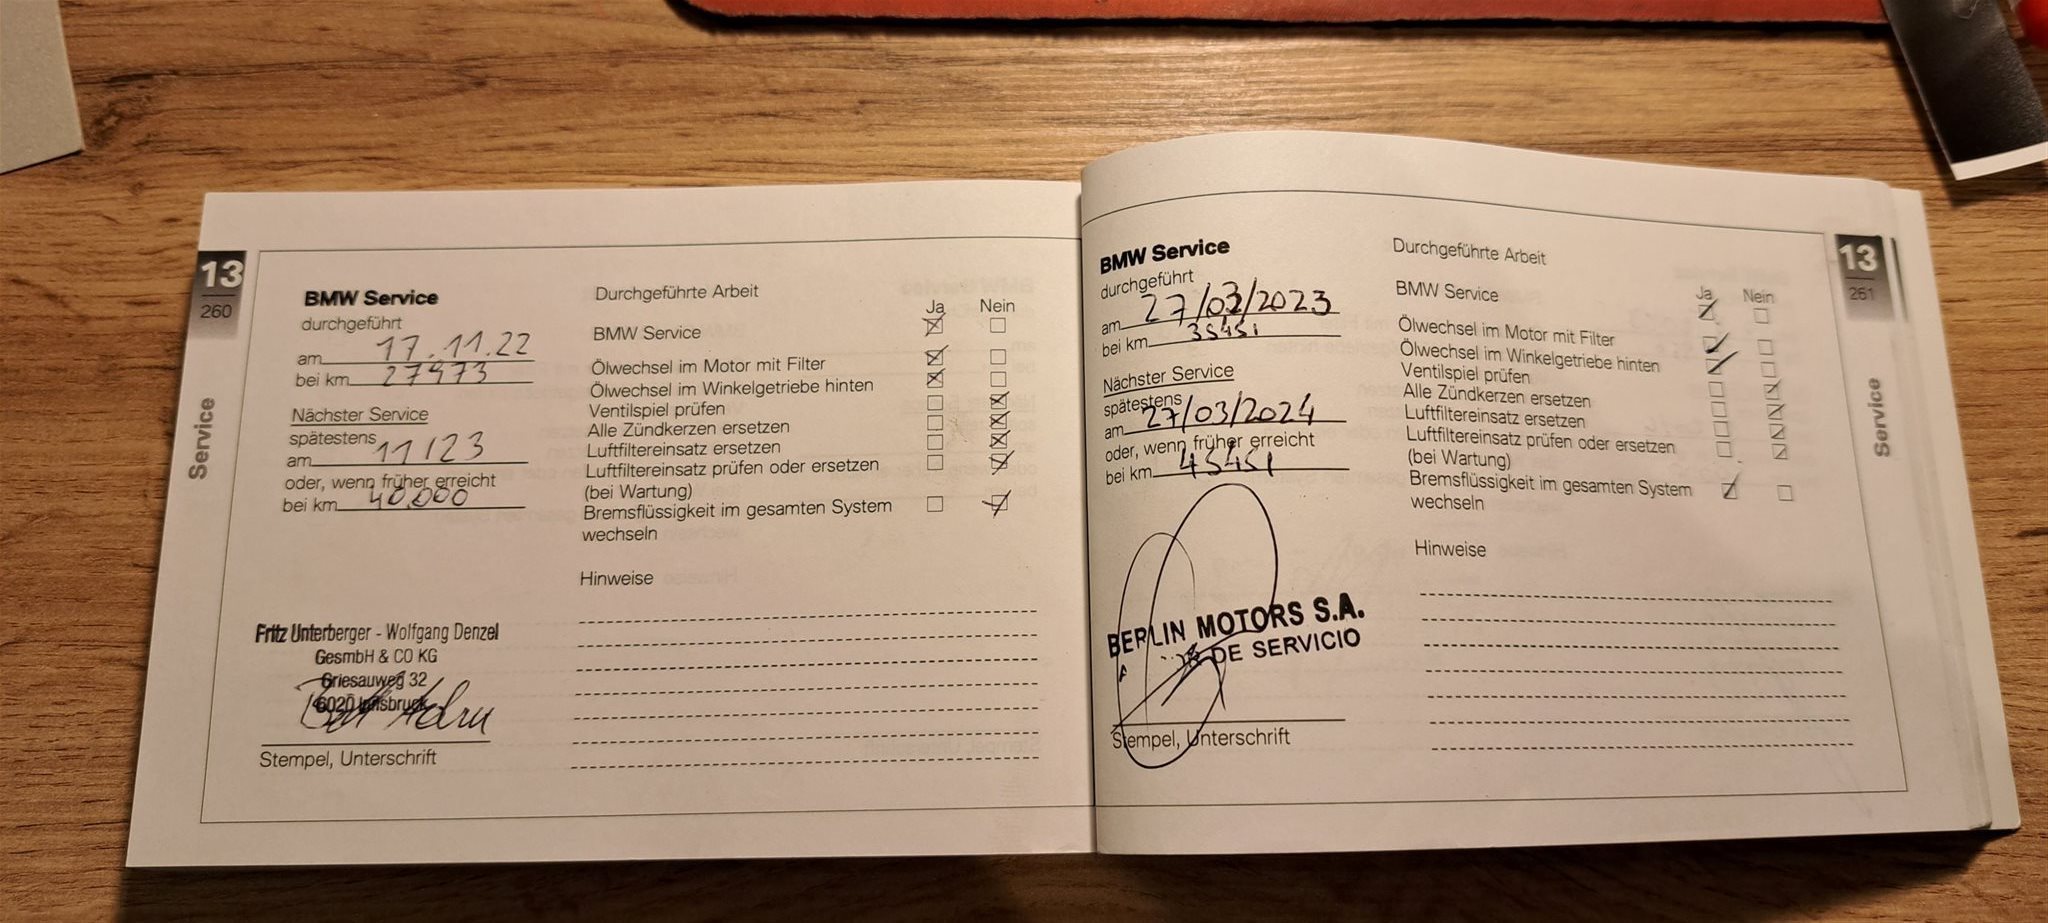 13
260
Service
BMW Service
durchgeführt
am 17.11.22
bei km 27973
Nächster Service
spätestens
am 11/23
oder, wenn früher erreicht
bei km 40.000
Fritz Unterberger - Wolfgang Denzel
GesmbH & CO KG
Griesauweg 32
6020 Innsbruck
Stempel, Unterschrift
Durchgeführte Arbeit
Ja Nein
BMW Service
Ölwechsel im Motor mit Filter
Ölwechsel im Winkelgetriebe hinten
Ventilspiel prüfen
Alle Zündkerzen ersetzen
Luftfiltereinsatz ersetzen
Luftfiltereinsatz prüfen oder ersetzen
(bei Wartung)
Bremsflüssigkeit im gesamten System
wechseln
Hinweise
BMW Service
durchgeführt
am 27/03/2023
bei km 35451
Nächster Service
spätestens
am 27/03/2024
oder, wenn früher erreicht
bei km 45451
BERLIN MOTORS S.A.
DE SERVICIO
Stempel, Unterschrift
Durchgeführte Arbeit
Ja Nein
BMW Service
Ölwechsel im Motor mit Filter
Ölwechsel im Winkelgetriebe hinten
Ventilspiel prüfen
Alle Zündkerzen ersetzen
Luftfiltereinsatz ersetzen
Luftfiltereinsatz prüfen oder ersetzen
(bei Wartung)
Bremsflüssigkeit im gesamten System
wechseln
Hinweise
13
261
Service